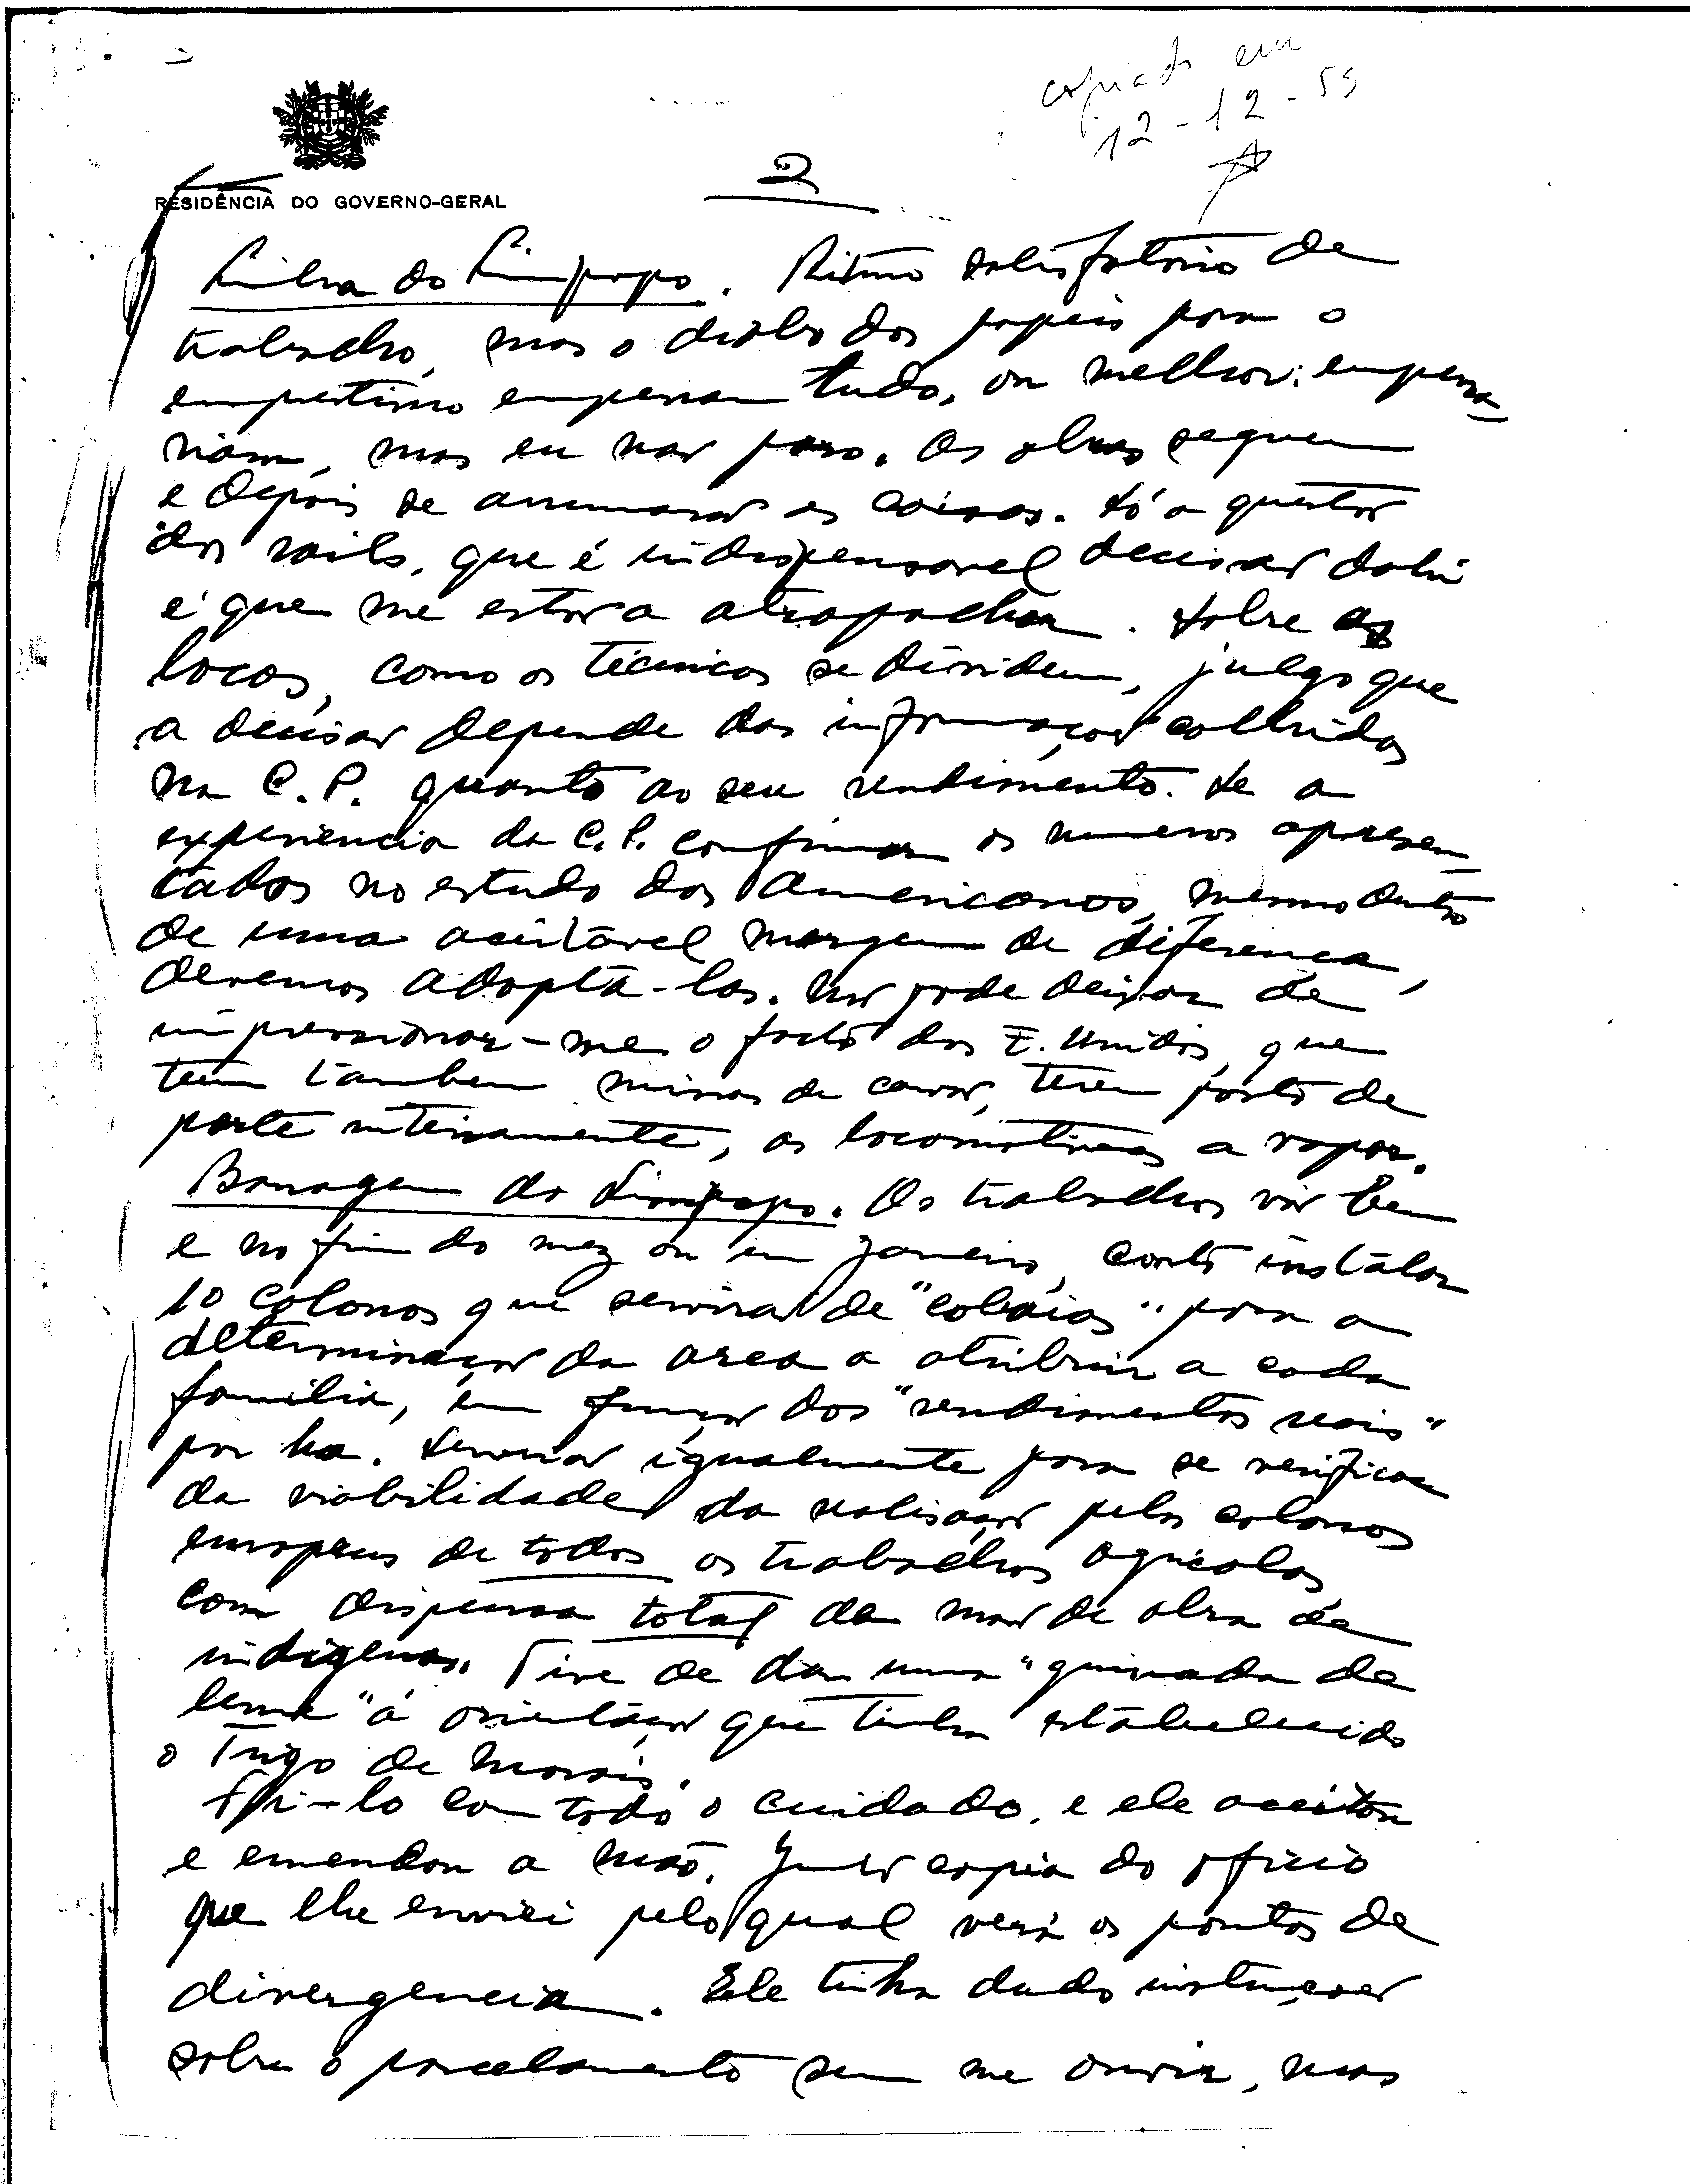 copiado em
12-12-53
2
RESIDÊNCIA DO GOVERNO-GERAL
Linha do Limpopo. Ritmo satisfatório de
trabalho, mas o diabo dos papeis para o
emprestimo emperram tudo, ou melhor: emperra-
riam, mas eu não paro. As obras seguem
e depois se arrumarão as coisas. Só a questão
dos rails, que é indispensavel decisão dahi
é que me está a atrapalhar. Sobre as
locos, como os técnicos se dividem, julgo que
a decisão depende das informações colhidas
na C.P. quanto ao seu rendimento. Se a
experiencia da C.P. confirmar os numeros apresen-
tados no estudo dos Americanos, mesmo dentro
de uma aceitável margem de diferença,
devemos adoptá-las. Não pode deixar de
impressionar-me o facto dos E. Unidos, que
teem tambem minas de carvão, terem posto de
parte inteiramente, as locomotivas a vapor.
Barragem do Limpopo. Os trabalhos vão bem
e no fim do mez ou em Janeiro, conto instalar
10 colonos que servirão de "cobaias" para a
determinação da area a atribuir a cada
familia, em função dos "rendimentos reais"
por ha. Servirão igualmente para se verificar
da viabilidade da realisação pelos colonos
europeus de todos os trabalhos agricolas
com dispensa total da mão de obra de
indigenas. Tive de dar uma "guinada de
leme" á orientação que tinha estabelecido
o Trigo de Morais.
Fi-lo com todo o cuidado, e ele aceitou
e emendou a mão. Junto copia do oficio
que lhe enviei pelo qual verá os pontos de
divergencia. Ele tinha dado instruções
sobre o parcelamento sem me ouvir, mas